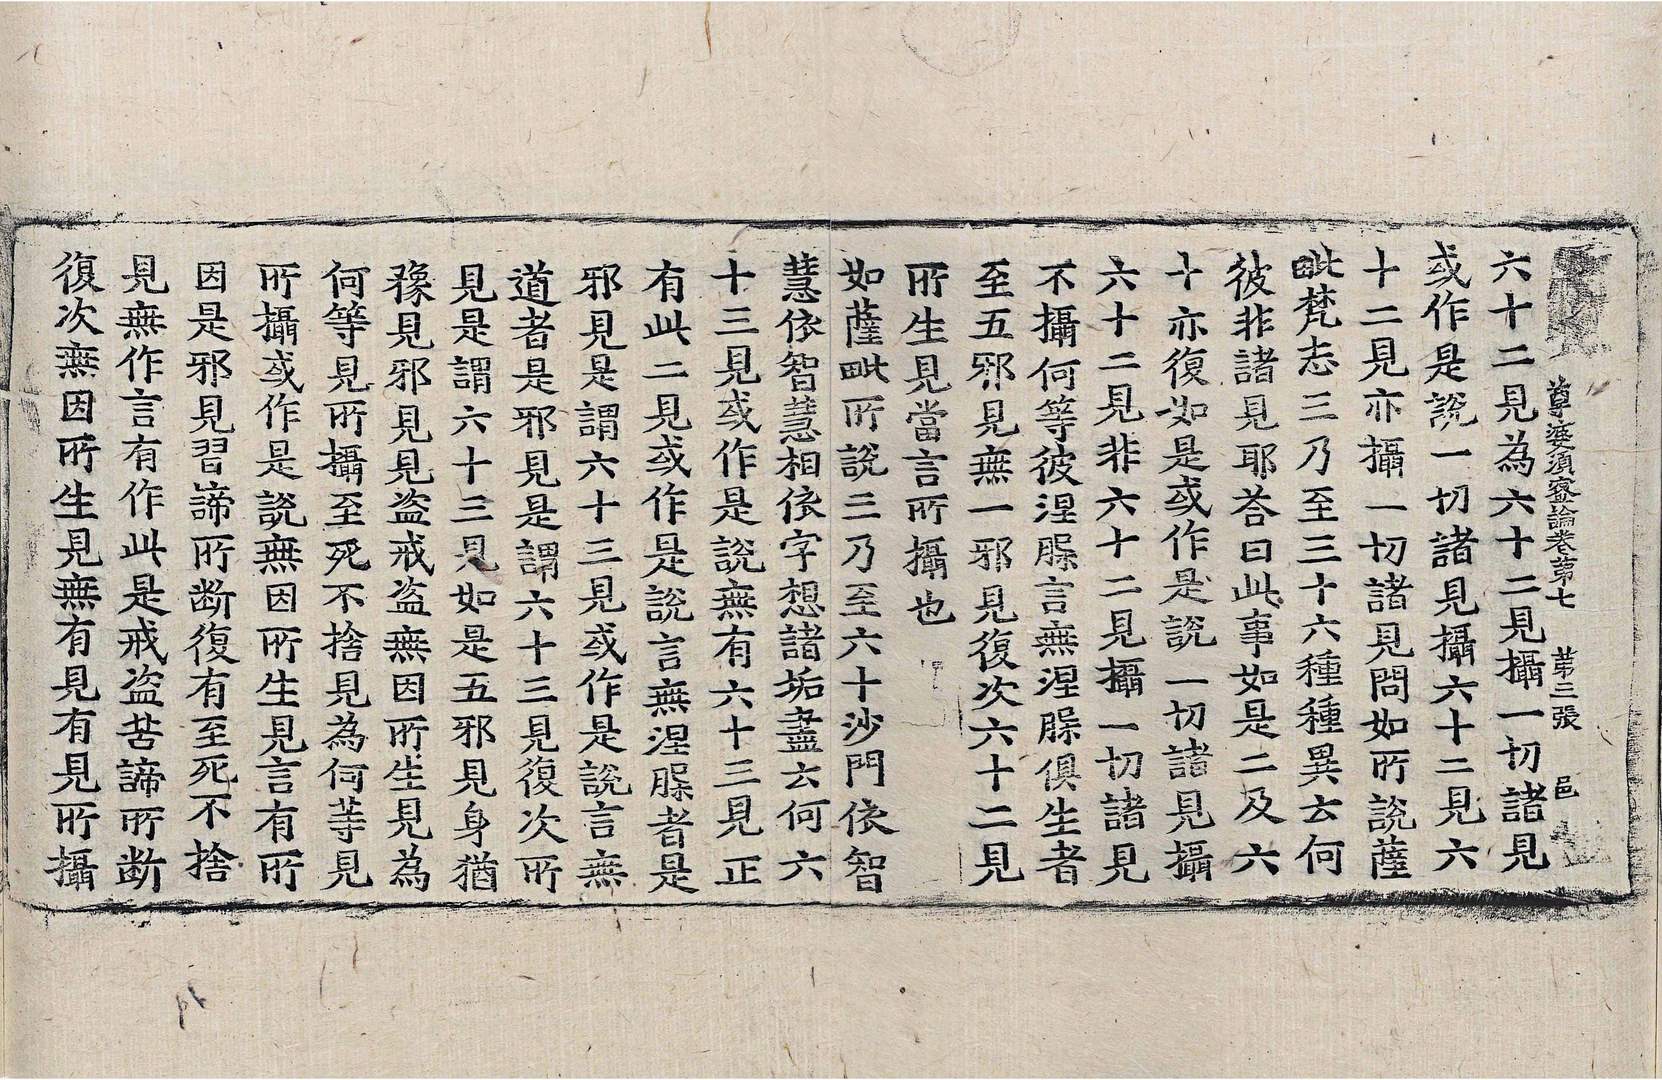 尊婆須蜜論卷第七 第三張 邑
六十二見為六十二見攝一切諸見
或作是說一切諸見攝六十二見六
十二見亦攝一切諸見問如所說薩
毗梵志三乃至三十六種種異云何
彼非諸見耶荅曰此事如是二及六
十亦復如是或作是說一切諸見攝
六十二見非六十二見攝一切諸見
不攝何等彼涅槃言無涅槃俱生者
至五邪見無一邪見復次六十二見
所生見當言所攝也
如薩毗所說三乃至六十沙門依智
慧依智慧相依字想諸垢盡云何六
十三見或作是說無有六十三見正
有此二見或作是說言無涅槃者是
邪見是謂六十三見或作是說言無
道者是邪見是謂六十三見復次所
見是謂六十三見如是五邪見身猶
豫見邪見見盜戒盜無因所生見為
何等見所攝至死不捨見為何等見
所攝或作是說無因所生見言有所
因是邪見習諦所断復有至死不捨
見無作言有作此是戒盜苦諦所断
復次無因所生見無有見有見所攝